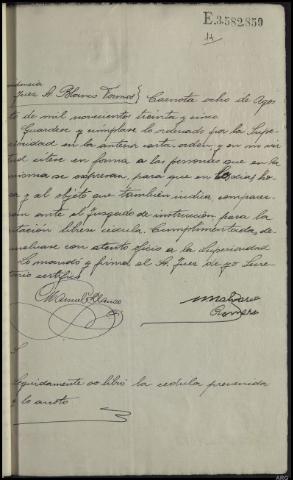 E.3.582.850
Juez A. Blanco Tomas} Carnota ocho de Agos
to de mil novecientos treinta y cinco
Guardese y cumplase lo ordenado por la Supe
rioridad en la anterior carta orden, y en su vir
tud citese en forma a las personas que en la
misma se expresan, para que en los dias ho
ra y al objeto que tambien indica comparez
can ante el Juzgado de instrucción para la
citación librese cédula. Cumplimentada, de
vuelvase con atento oficio a la Superioridad
Lo mandó y firma el Sr. Juez de que yo Secre
tario certifico
Manuel Blanco
Romero
Seguidamente se libró la cedula prevenida
lo anoto